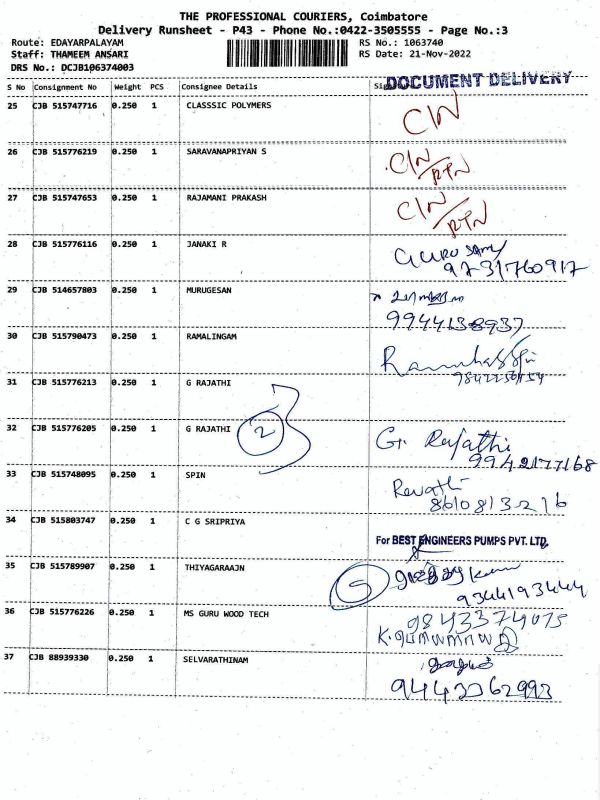 THE PROFESSIONAL COURIERS, Coimbatore
Delivery Runsheet - P43 - Phone No.:0422-3505555 - Page No.:3
Route: EDAYARPALAYAM RS No.: 1063740
Staff: THAMEEM ANSARI RS Date: 21-Nov-2022
DRS No.: DCJB106374003
DOCUMENT DELIVERY
S No Consignment No Weight PCS Consignee Details
25 CJB 515747716 0.250 1 CLASSSIC POLYMERS C/N
26 CJB 515776219 0.250 1 SARAVANAPRIYAN S C/N/RTN
27 CJB 515747653 0.250 1 RAJAMANI PRAKASH C/N/RTN
28 CJB 515776116 0.250 1 JANAKI R GURU SAMY
9731760917
29 CJB 514657803 0.250 1 MURUGESAN
9944138937
30 CJB 515790473 0.250 1 RAMALINGAM
31 CJB 515776213 0.250 1 G RAJATHI
32 CJB 515776205 0.250 1 G RAJATHI 2 G. Rajathi
9942177168
33 CJB 515748095 0.250 1 SPIN Revathi
8610813216
34 CJB 515803747 0.250 1 C G SRIPRIYA
For BEST ENGINEERS PUMPS PVT. LTD.
35 CJB 515789907 0.250 1 THIYAGARAAJN
9344193444
36 CJB 515776226 0.250 1 MS GURU WOOD TECH 9843374075
37 CJB 88939330 0.250 1 SELVARATHINAM
9443362993